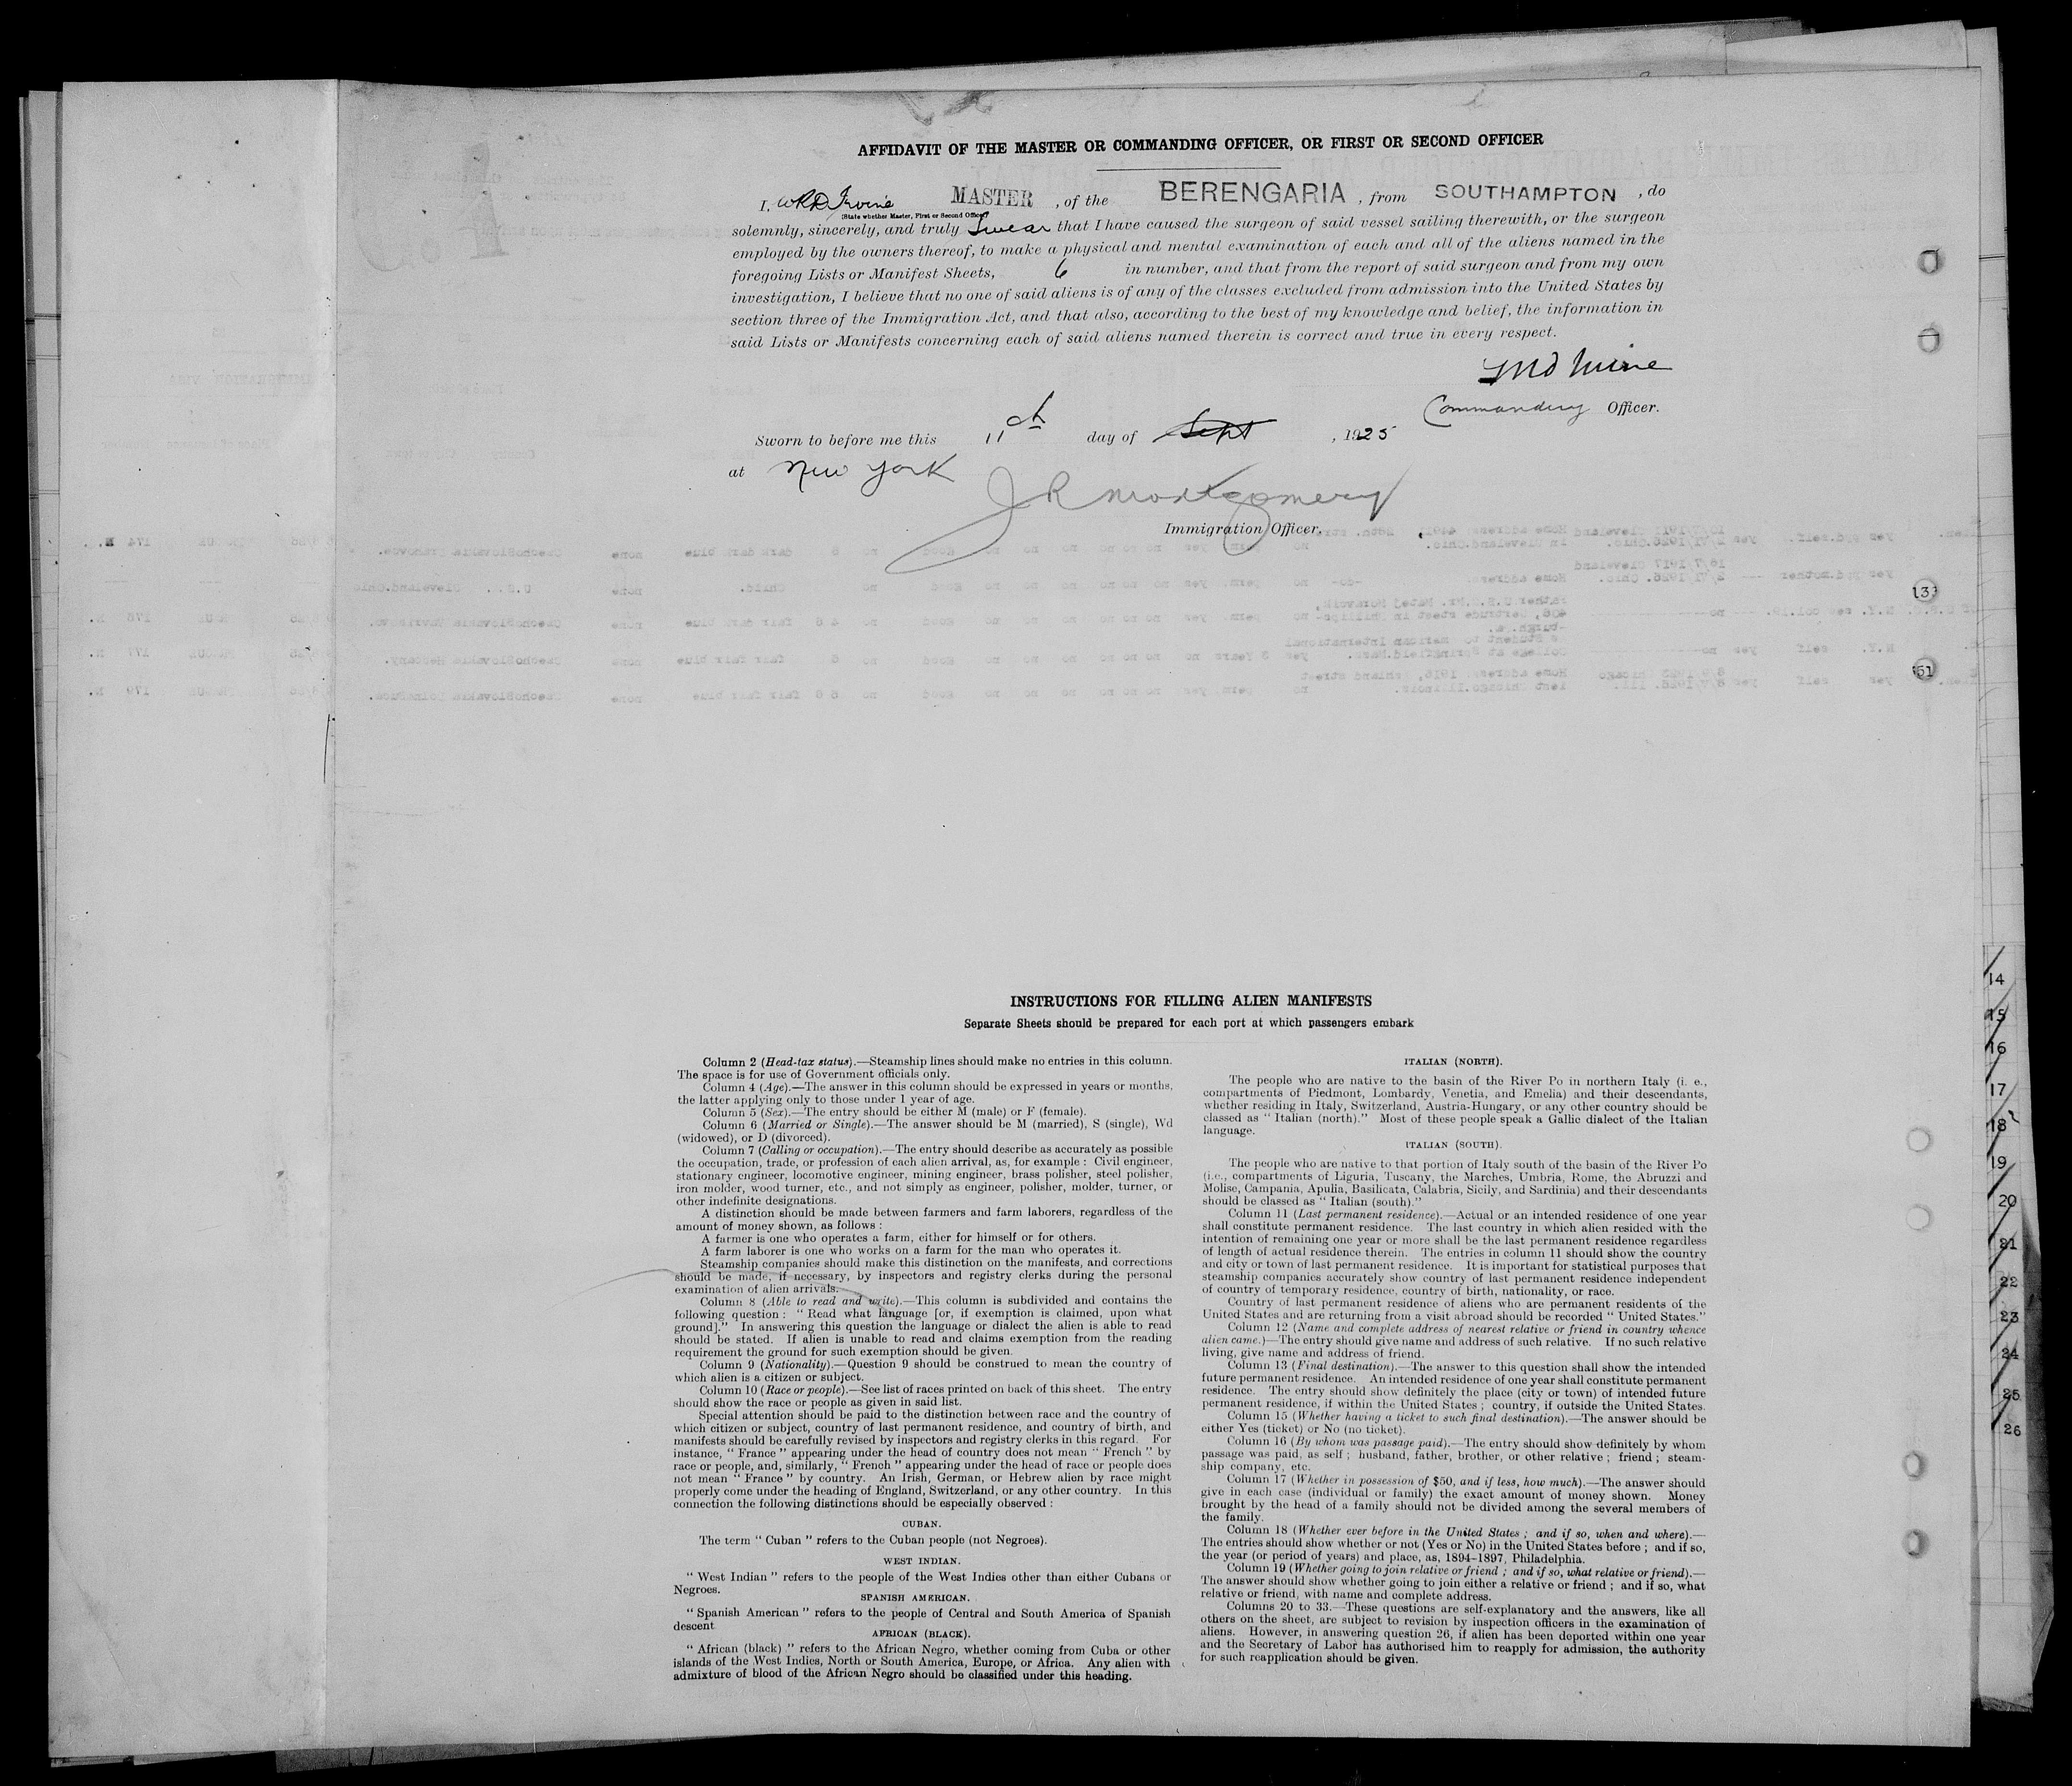 AFFIDAVIT OF THE MASTER OR COMMANDING OFFICER, OR FIRST OR SECOND OFFICER
I, W R D Irvine MASTER , of the BERENGARIA , from SOUTHAMPTON , do
(State whether Master, First or Second Officer)
solemnly, sincerely, and truly Swear that I have caused the surgeon of said vessel sailing therewith, or the surgeon
employed by the owners thereof, to make a physical and mental examination of each and all of the aliens named in the
foregoing Lists or Manifest Sheets, 6 in number, and that from the report of said surgeon and from my own
investigation, I believe that no one of said aliens is of any of the classes excluded from admission into the United States by
section three of the Immigration Act, and that also, according to the best of my knowledge and belief, the information in
said Lists or Manifests concerning each of said aliens named therein is correct and true in every respect.
Irvine
Commanding Officer.
Sworn to before me this 11th day of Sept , 1925
at New York
J R Montgomery
Immigration Officer.
INSTRUCTIONS FOR FILLING ALIEN MANIFESTS
Separate Sheets should be prepared for each port at which passengers embark
Column 2 (Head-tax status).—Steamship lines should make no entries in this column.
The space is for use of Government officials only.
Column 4 (Age).—The answer in this column should be expressed in years or months,
the latter applying only to those under 1 year of age.
Column 5 (Sex).—The entry should be either M (male) or F (female).
Column 6 (Married or Single).—The answer should be M (married), S (single), Wd
(widowed), or D (divorced).
Column 7 (Calling or occupation).—The entry should describe as accurately as possible
the occupation, trade, or profession of each alien arrival, as, for example : Civil engineer,
stationary engineer, locomotive engineer, mining engineer, brass polisher, steel polisher,
iron molder, wood turner, etc., and not simply as engineer, polisher, molder, turner, or
other indefinite designations.
A distinction should be made between farmers and farm laborers, regardless of the
amount of money shown, as follows :
A farmer is one who operates a farm, either for himself or for others.
A farm laborer is one who works on a farm for the man who operates it.
Steamship companies should make this distinction on the manifests, and corrections
should be made, if necessary, by inspectors and registry clerks during the personal
examination of alien arrivals.
Column 8 (Able to read and write).—This column is subdivided and contains the
following question : " Read what language [or, if exemption is claimed, upon what
ground]." In answering this question the language or dialect the alien is able to read
should be stated. If alien is unable to read and claims exemption from the reading
requirement the ground for such exemption should be given.
Column 9 (Nationality).—Question 9 should be construed to mean the country of
which alien is a citizen or subject.
Column 10 (Race or people).—See list of races printed on back of this sheet. The entry
should show the race or people as given in said list.
Special attention should be paid to the distinction between race and the country of
which citizen or subject, country of last permanent residence, and country of birth, and
manifests should be carefully revised by inspectors and registry clerks in this regard. For
instance, " France " appearing under the head of country does not mean " French " by
race or people, and, similarly, " French " appearing under the head of race or people does
not mean " France " by country. An Irish, German, or Hebrew alien by race might
properly come under the heading of England, Switzerland, or any other country. In this
connection the following distinctions should be especially observed :
CUBAN.
The term " Cuban " refers to the Cuban people (not Negroes).
WEST INDIAN.
" West Indian " refers to the people of the West Indies other than either Cubans or
Negroes.
SPANISH AMERICAN.
" Spanish American " refers to the people of Central and South America of Spanish
descent
AFRICAN (BLACK).
" African (black) " refers to the African Negro, whether coming from Cuba or other
islands of the West Indies, North or South America, Europe, or Africa. Any alien with
admixture of blood of the African Negro should be classified under this heading.
ITALIAN (NORTH).
The people who are native to the basin of the River Po in northern Italy (i. e.,
compartments of Piedmont, Lombardy, Venetia, and Emelia) and their descendants,
whether residing in Italy, Switzerland, Austria-Hungary, or any other country should be
classed as " Italian (north)." Most of these people speak a Gallic dialect of the Italian
language.
ITALIAN (SOUTH).
The people who are native to that portion of Italy south of the basin of the River Po
(i.e., compartments of Liguria, Tuscany, the Marches, Umbria, Rome, the Abruzzi and
Molise, Campania, Apulia, Basilicata, Calabria, Sicily, and Sardinia) and their descendants
should be classed as " Italian (south)."
Column 11 (Last permanent residence).—Actual or an intended residence of one year
shall constitute permanent residence. The last country in which alien resided with the
intention of remaining one year or more shall be the last permanent residence regardless
of length of actual residence therein. The entries in column 11 should show the country
and city or town of last permanent residence. It is important for statistical purposes that
steamship companies accurately show country of last permanent residence independent
of country of temporary residence, country of birth, nationality, or race.
Country of last permanent residence of aliens who are permanent residents of the
United States and are returning from a visit abroad should be recorded " United States."
Column 12 (Name and complete address of nearest relative or friend in country whence
alien came.)—The entry should give name and address of such relative. If no such relative
living, give name and address of friend.
Column 13 (Final destination).—The answer to this question shall show the intended
future permanent residence. An intended residence of one year shall constitute permanent
residence. The entry should show definitely the place (city or town) of intended future
permanent residence, if within the United States ; country, if outside the United States.
Column 15 (Whether having a ticket to such final destination).—The answer should be
either Yes (ticket) or No (no ticket).
Column 16 (By whom was passage paid).—The entry should show definitely by whom
passage was paid, as self ; husband, father, brother, or other relative ; friend ; steam-
ship company, etc.
Column 17 (Whether in possession of $50, and if less, how much).—The answer should
give in each case (individual or family) the exact amount of money shown. Money
brought by the head of a family should not be divided among the several members of
the family.
Column 18 (Whether ever before in the United States ; and if so, when and where).—
The entries should show whether or not (Yes or No) in the United States before ; and if so,
the year (or period of years) and place, as, 1894–1897, Philadelphia.
Column 19 (Whether going to join relative or friend ; and if so, what relative or friend).—
The answer should show whether going to join either a relative or friend ; and if so, what
relative or friend, with name and complete address.
Columns 20 to 33.—These questions are self-explanatory and the answers, like all
others on the sheet, are subject to revision by inspection officers in the examination of
aliens. However, in answering question 26, if alien has been deported within one year
and the Secretary of Labor has authorised him to reapply for admission, the authority
for such reapplication should be given.
14
15
16
17
18
19
20
21
22
23
24
25
26